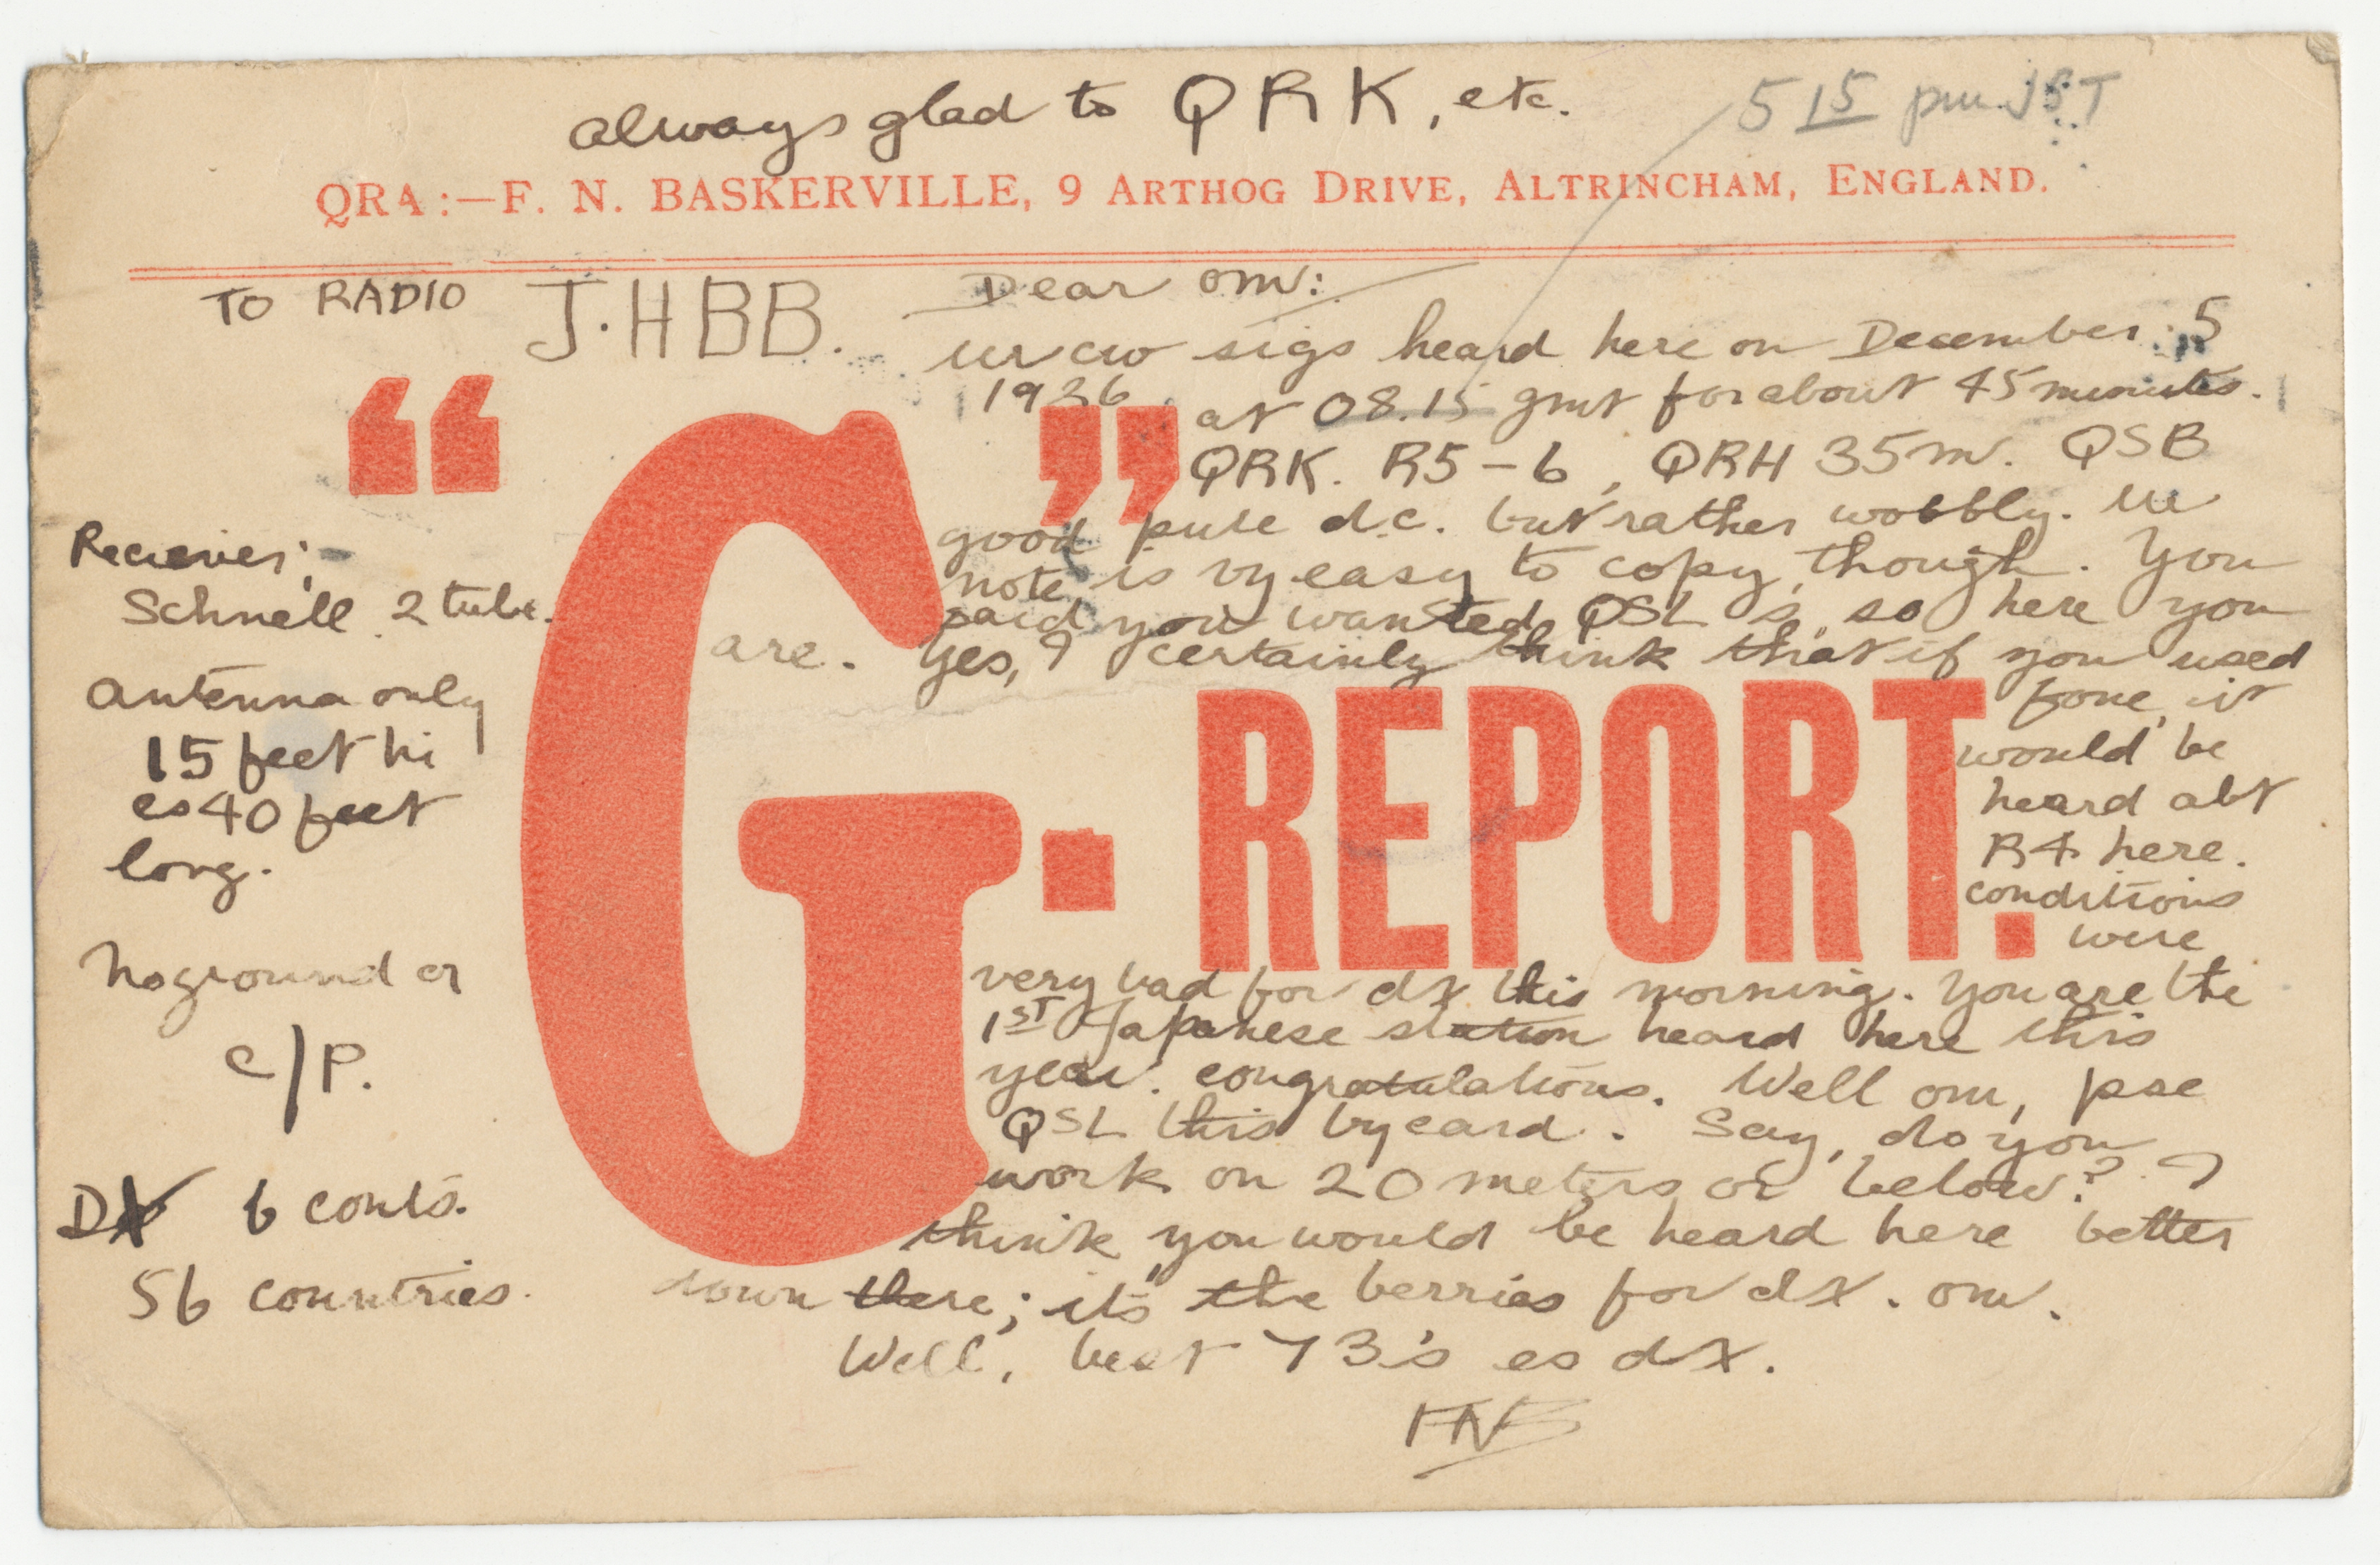 always glad to QRK, etc.
5 15 pm JST
QRA:—F. N. BASKERVILLE, 9 ARTHOG DRIVE, ALTRINCHAM, ENGLAND.
TO RADIO J.HBB.
Dear om:
ur cw sigs heard here on December 5
1926 at 08.15 gmt for about 45 minutes.
QRK. R5-6, QRH 35m. QSB
good pure d.c. but rather wobbly. ur
note is vy easy to copy, though. You
said you wanted QSL's, so here you
are. Yes, I certainly think that if you used
fone, it
would be
heard abt
R4 here.
conditions
were
very bad for dx this morning. You are the
1ST Japanese station heard here this
year. congratulations. Well om, pse
QSL this by card. Say, do you
work on 20 meters or below? I
think you would be heard here better
down there; it's the berries for dx. om.
Well, best 73's es dx.
FNB
"G"-REPORT.
Reciever:
Schnell 2 tube.
Antenna only
15 feet hi
es 40 feet
long.
No ground or
c/P.
DX 6 conts.
56 countries.